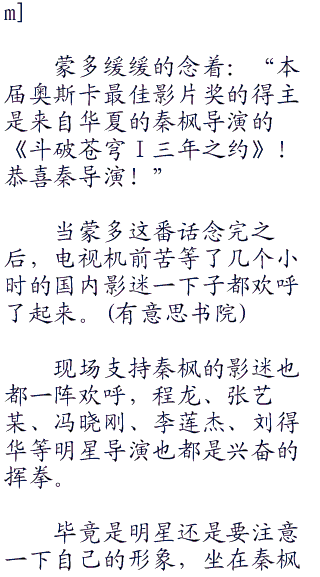 m]
蒙多缓缓的念着：“本
届奥斯卡最佳影片奖的得主
是来自华夏的秦枫导演的
《斗破苍穹Ⅰ三年之约》！
恭喜秦导演！”
当蒙多这番话念完之
后，电视机前苦等了几个小
时的国内影迷一下子都欢呼
了起来。(有意思书院)
现场支持秦枫的影迷也
都一阵欢呼，程龙、张艺
某、冯晓刚、李莲杰、刘得
华等明星导演也都是兴奋的
挥拳。
毕竟是明星还是要注意
一下自己的形象，坐在秦枫